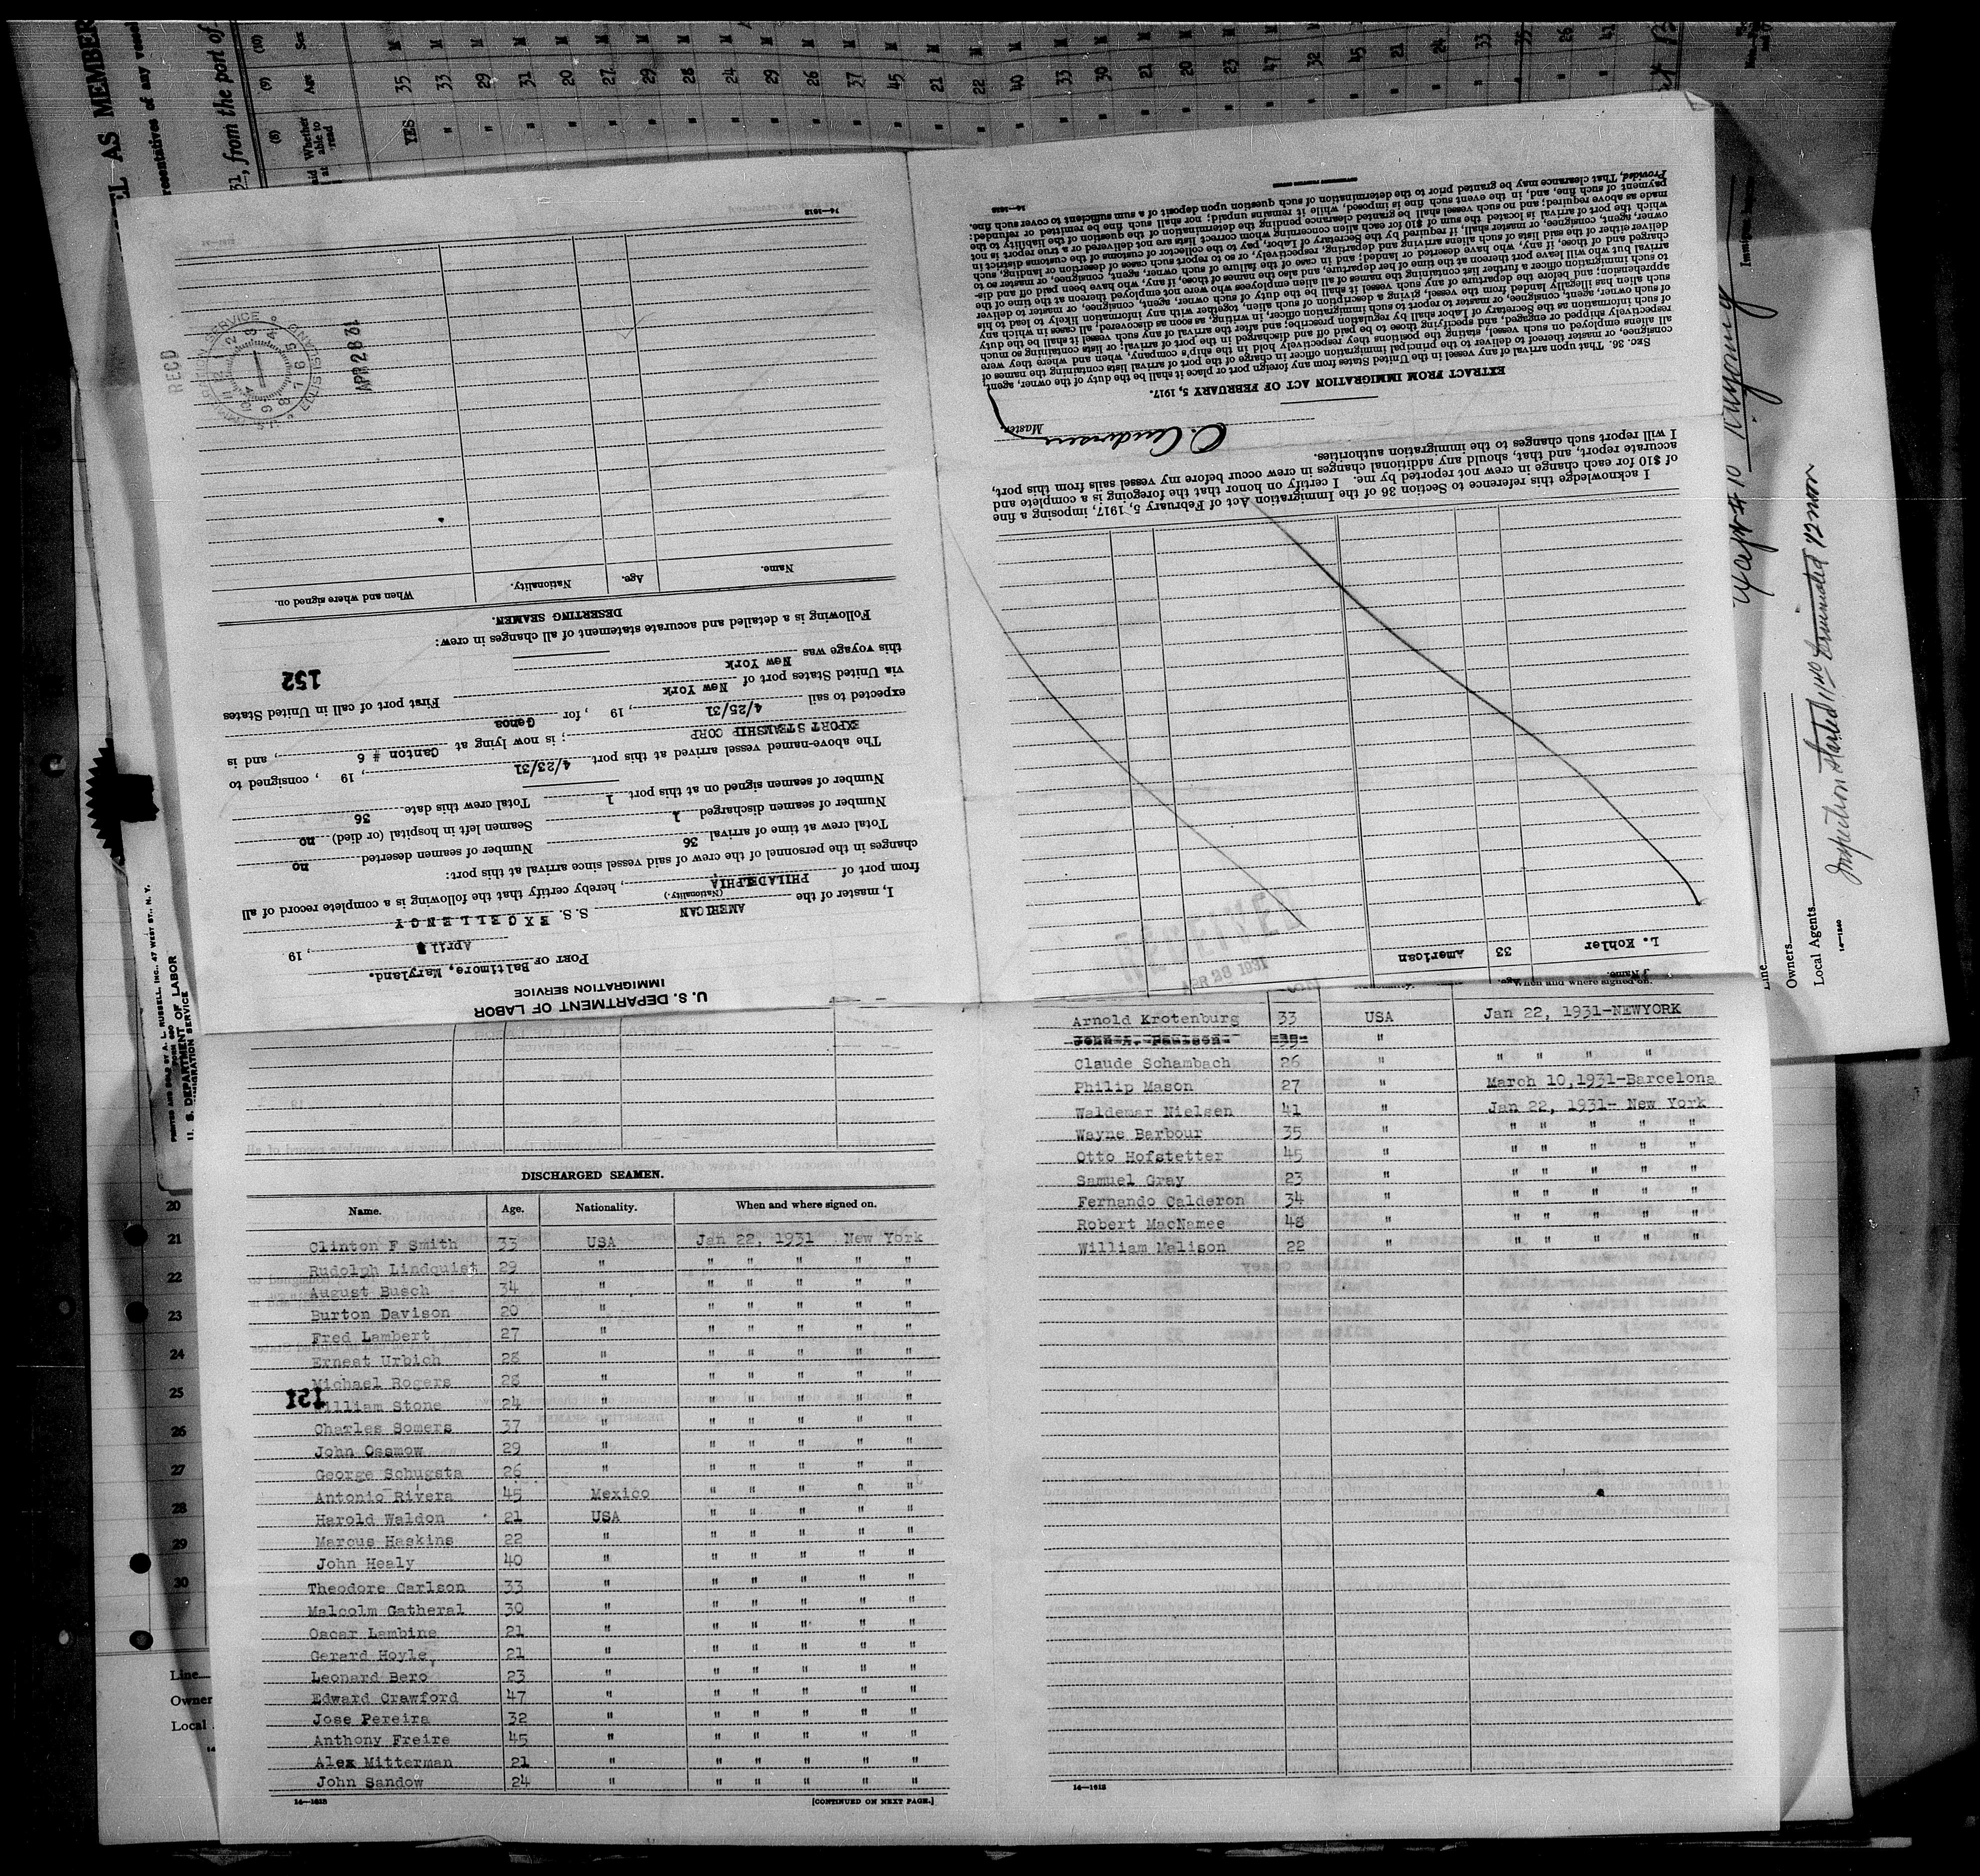 U. S. DEPARTMENT OF LABOR
IMMIGRATION SERVICE
PORT OF Baltimore, Maryland.
April , 19
I, master of the AMERICAN S. S. EXCELLENCY
(Nationality.)
from port of PHILADELPHIA, hereby certify that the following is a complete record of all
changes in the personnel of the crew of said vessel since arrival at this port:
Total crew at time of arrival 36 Number of seamen deserted no
Number of seamen discharged 1 Seamen left in hospital (or died) no
Number of seamen signed on at this port 1 Total crew this date 36
The above-named vessel arrived at this port 4/23/31, 19 , consigned to
EXPORT STEAMSHIP CORP ; is now lying at Canton # 6, and is
expected to sail 4/25/31, 19 , for Genoa
via United States port of New York First port of call in United States
this voyage was New York
152
Following is a detailed and accurate statement of all changes in crew:
DESERTING SEAMEN.
Name. Age. Nationality. When and where signed on.
REC'D
APR 28 31
14—1618
L. Kohler 33 American
APR 28 1931
I acknowledge this reference to Section 36 of the Immigration Act of February 5, 1917, imposing a fine
of $10 for each change in crew not reported by me. I certify on honor that the foregoing is a complete and
accurate report, and that, should any additional changes in crew occur before my vessel sails from this port,
I will report such changes to the immigration authorities.
Master.
EXTRACT FROM IMMIGRATION ACT OF FEBRUARY 5, 1917.
SEC. 36. That upon arrival of any vessel in the United States from any foreign port or place it shall be the duty of the owner, agent,
consignee, or master thereof to deliver to the principal immigration officer in charge of the port of arrival lists containing the names of
all aliens employed on such vessel, stating the positions they respectively hold in the ship's company, when and where they were
respectively shipped or engaged, and specifying those to be paid off and discharged in the port of arrival; or lists containing so much
of such information as the Secretary of Labor shall by regulation prescribe; and after the arrival of any such vessel it shall be the duty
of such owner, agent, consignee, or master to report to such immigration officer, in writing, as soon as discovered, all cases in which any
such alien has illegally landed from the vessel, giving a description of such alien, together with any information likely to lead to his
apprehension; and before the departure of any such vessel it shall be the duty of such owner, agent, consignee, or master to deliver
to such immigration officer a further list containing the names of all alien employees who were not employed thereon at the time of the
arrival but who will leave port thereon at the time of her departure, and also the names of those, if any, who have been paid off and dis-
charged and of those, if any, who have deserted or landed; and in case of the failure of such owner, agent, consignee, or master so to
deliver either of the said lists of such aliens arriving and departing, respectively, or so to report such cases of desertion or landing, such
owner, agent, consignee, or master shall, if required by the Secretary of Labor, pay to the collector of customs of the customs district in
which the port of arrival is located the sum of $10 for each alien concerning whom correct lists are not delivered or a true report is not
made as above required; and no such vessel shall be granted clearance pending the determination of the question of the liability to the
payment of such fine, and, in the event such fine is imposed, while it remains unpaid; nor shall such fine be remitted or refunded:
Provided, That clearance may be granted prior to the determination of such question upon deposit of a sum sufficient to cover such fine.
14—1618
DISCHARGED SEAMEN.
Name. Age. Nationality. When and where signed on.
Clinton F Smith 33 USA Jan 22, 1931 New York
Rudolph Lindquist 29 " " " " " "
August Busch 34 " " " " " "
Burton Davison 20 " " " " " "
Fred Lambert 27 " " " " " "
Ernest Urbich 28 " " " " " "
Michael Rogers 28 " " " " " "
151
William Stone 24 " " " " " "
Charles Somers 37 " " " " " "
John Ossmow 29 " " " " " "
George Schugsta 26 " " " " " "
Antonio Rivera 45 Mexico " " " " "
Harold Waldon 21 USA " " " " "
Marcus Haskins 22 " " " " " "
John Healy 40 " " " " " "
Theodore Carlson 33 " " " " " "
Malcolm Gatheral 30 " " " " " "
Oscar Lambine 21 " " " " " "
Gerard Hoyle 21 " " " " " "
Leonard Bero 23 " " " " " "
Edward Crawford 47 " " " " " "
Jose Pereira 32 " " " " " "
Anthony Freire 45 " " " " " "
Alex Mitterman 21 " " " " " "
John Sandow 24 " " " " " "
14—1618 [CONTINUED ON NEXT PAGE.]
When and where signed on.
Arnold Krotenburg 33 USA Jan 22, 1931-NEWYORK
Claude Schambach 26 " " " " "
Philip Mason 27 " March 10,1931-Barcelona
Waldemar Nielsen 41 " Jan 22, 1931- New York
Wayne Barbour 35 " " " " " "
Otto Hofstetter 45 " " " " " "
Samuel Gray 23 " " " " " "
Fernando Calderon 34 " " " " " "
Robert MacNamee 48 " " " " " "
William Melison 22 " " " " " "
14—1618
AS MEMBER
representatives of any vessel
31, from the port of
(8) (9) (10)
Whether able to read Age Sex
YES 35 M
" 33 M
" 29 M
" 31 M
" 20 M
" 27 M
" 29 M
" 28 M
" 24 M
" 29 M
" 26 M
" 37 M
" 45 M
" 21 M
" 22 M
" 40 M
" 33 M
" 30 M
" 21 M
" 20 M
" 23 M
" 47 M
" 32 M
" 45 M
" 21 M
" 24 M
" 33
" 35
" 26
" 41
Owners
Local Agents
14—1240
PRINTED AND SOLD BY A. L. RUSSELL, INC., 47 WEST ST., N. Y.
U. S. DEPARTMENT OF LABOR
IMMIGRATION SERVICE
20
21
22
23
24
25
26
27
28
29
30
Line
Owner
Local